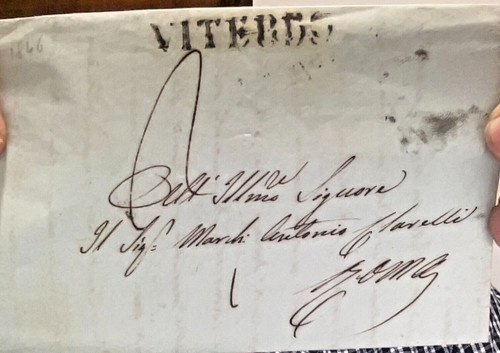 1846
VITERBO
All' Illmo Signore
Il Sigr March: Antonio Clarelli
Roma